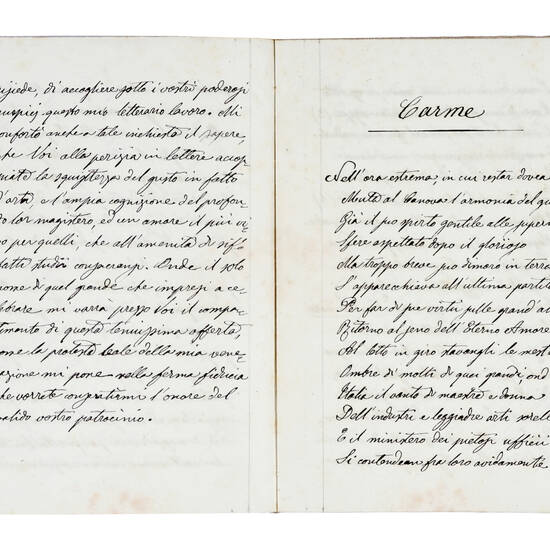 chiede, di accogliere sotto i vostri poderosi
auspicj questo mio letterario lavoro. Mi
confortò anche a tale inchiesta il sapere,
che Voi alla perizia in lettere accop
piate la squisitezza del gusto in fatto
d'arti, e l'ampia cognizione del profon
do lor magistero, ed un amore il più vi
vo per quelli, che all'amenità di sif
fatti studj consacransi. Onde il solo
nome di quel grande che impresi a ce
lebrare mi varrà presso Voi il compa
timento di questa tenuissima offerta,
come la protesta leale della mia vene
razione mi pone nella ferma fiducia
che vorrete compartirmi l'onore del
valido vostro patrocinio.
Carme
Nell'ora estrema, in cui restar dovea
Muta al Canova l'armonia del
Già il pio spirto gentile alle superne
Sfere aspettato dopo il glorioso
Ma troppo breve suo dimoro in terra
S'apparecchiava all'ultima partita
Per far di sue virtù sulle grand'
Ritorno al seno dell'Eterno Amore
Al letto in giro stavangli le meste
Ombre di molti di quei grandi, ond
Italia il vanto di maestra e donna
Dell'industri e leggiadre arti sorelle
E il ministero dei pietosi ufficii
Si contendean fra loro avidamente